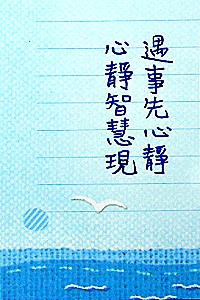 遇事先心靜
心靜智慧現